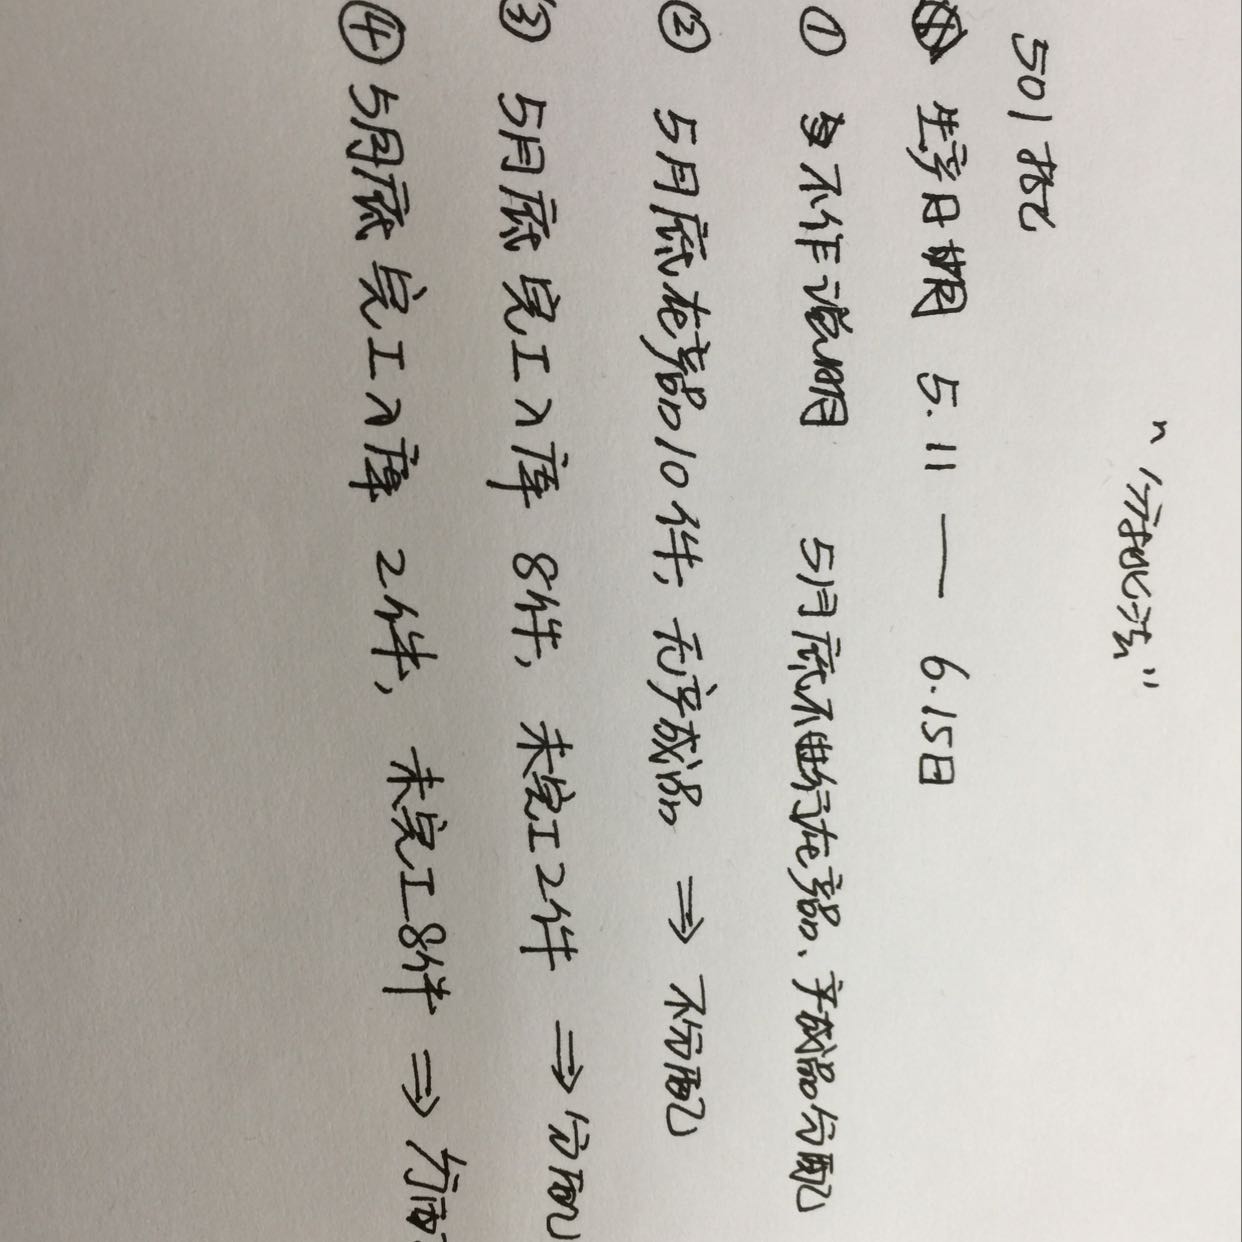 "分批法"
501批
生产日期 5.11 — 6.15日
① 不作说明 5月底不进行在产品、产成品分配
② 5月底在产品10件, 无产成品 ⇒ 不分配
③ 5月底完工入库 8件, 未完工2件 ⇒ 分配
④ 5月底完工入库 2件, 未完工8件 ⇒ 分配